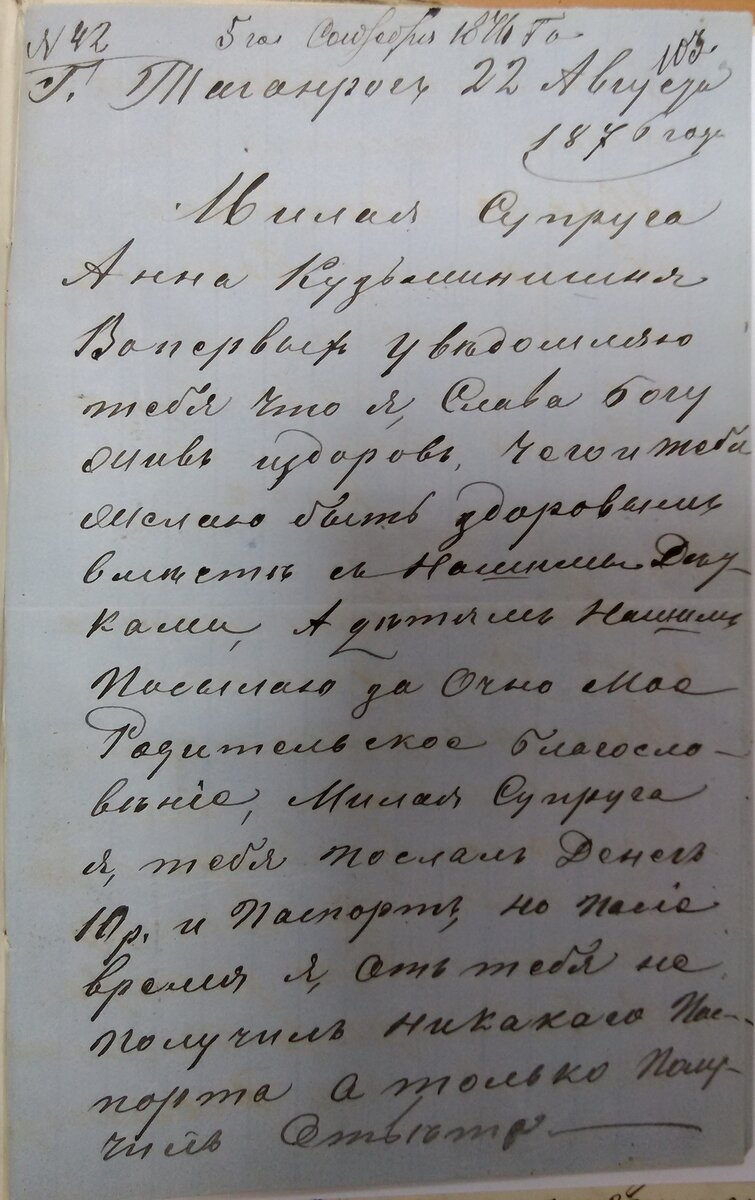 № 42
5го Сентября 1876 Го
103
Г. Таганрогъ 22 Августа
1876 года
Милая Супруга
Анна Кузьминишня
Вопервых увѣдомляю
тебя что я, Слава Богу
живъ издоровъ, чего и тебѣ
желаю быть здоровымъ
вмѣстѣ съ Нашими Дѣт-
ками, А дѣтямъ Нашимъ
Посылаю за Очно Мое
Родительское благосло-
вѣніе, Милая Супруга
я, тебя послалъ Денегъ
10 р. и Паспортъ, но после
время я, Отъ тебя не
получилъ никакаго Пас-
порта а только Полу-
чилъ